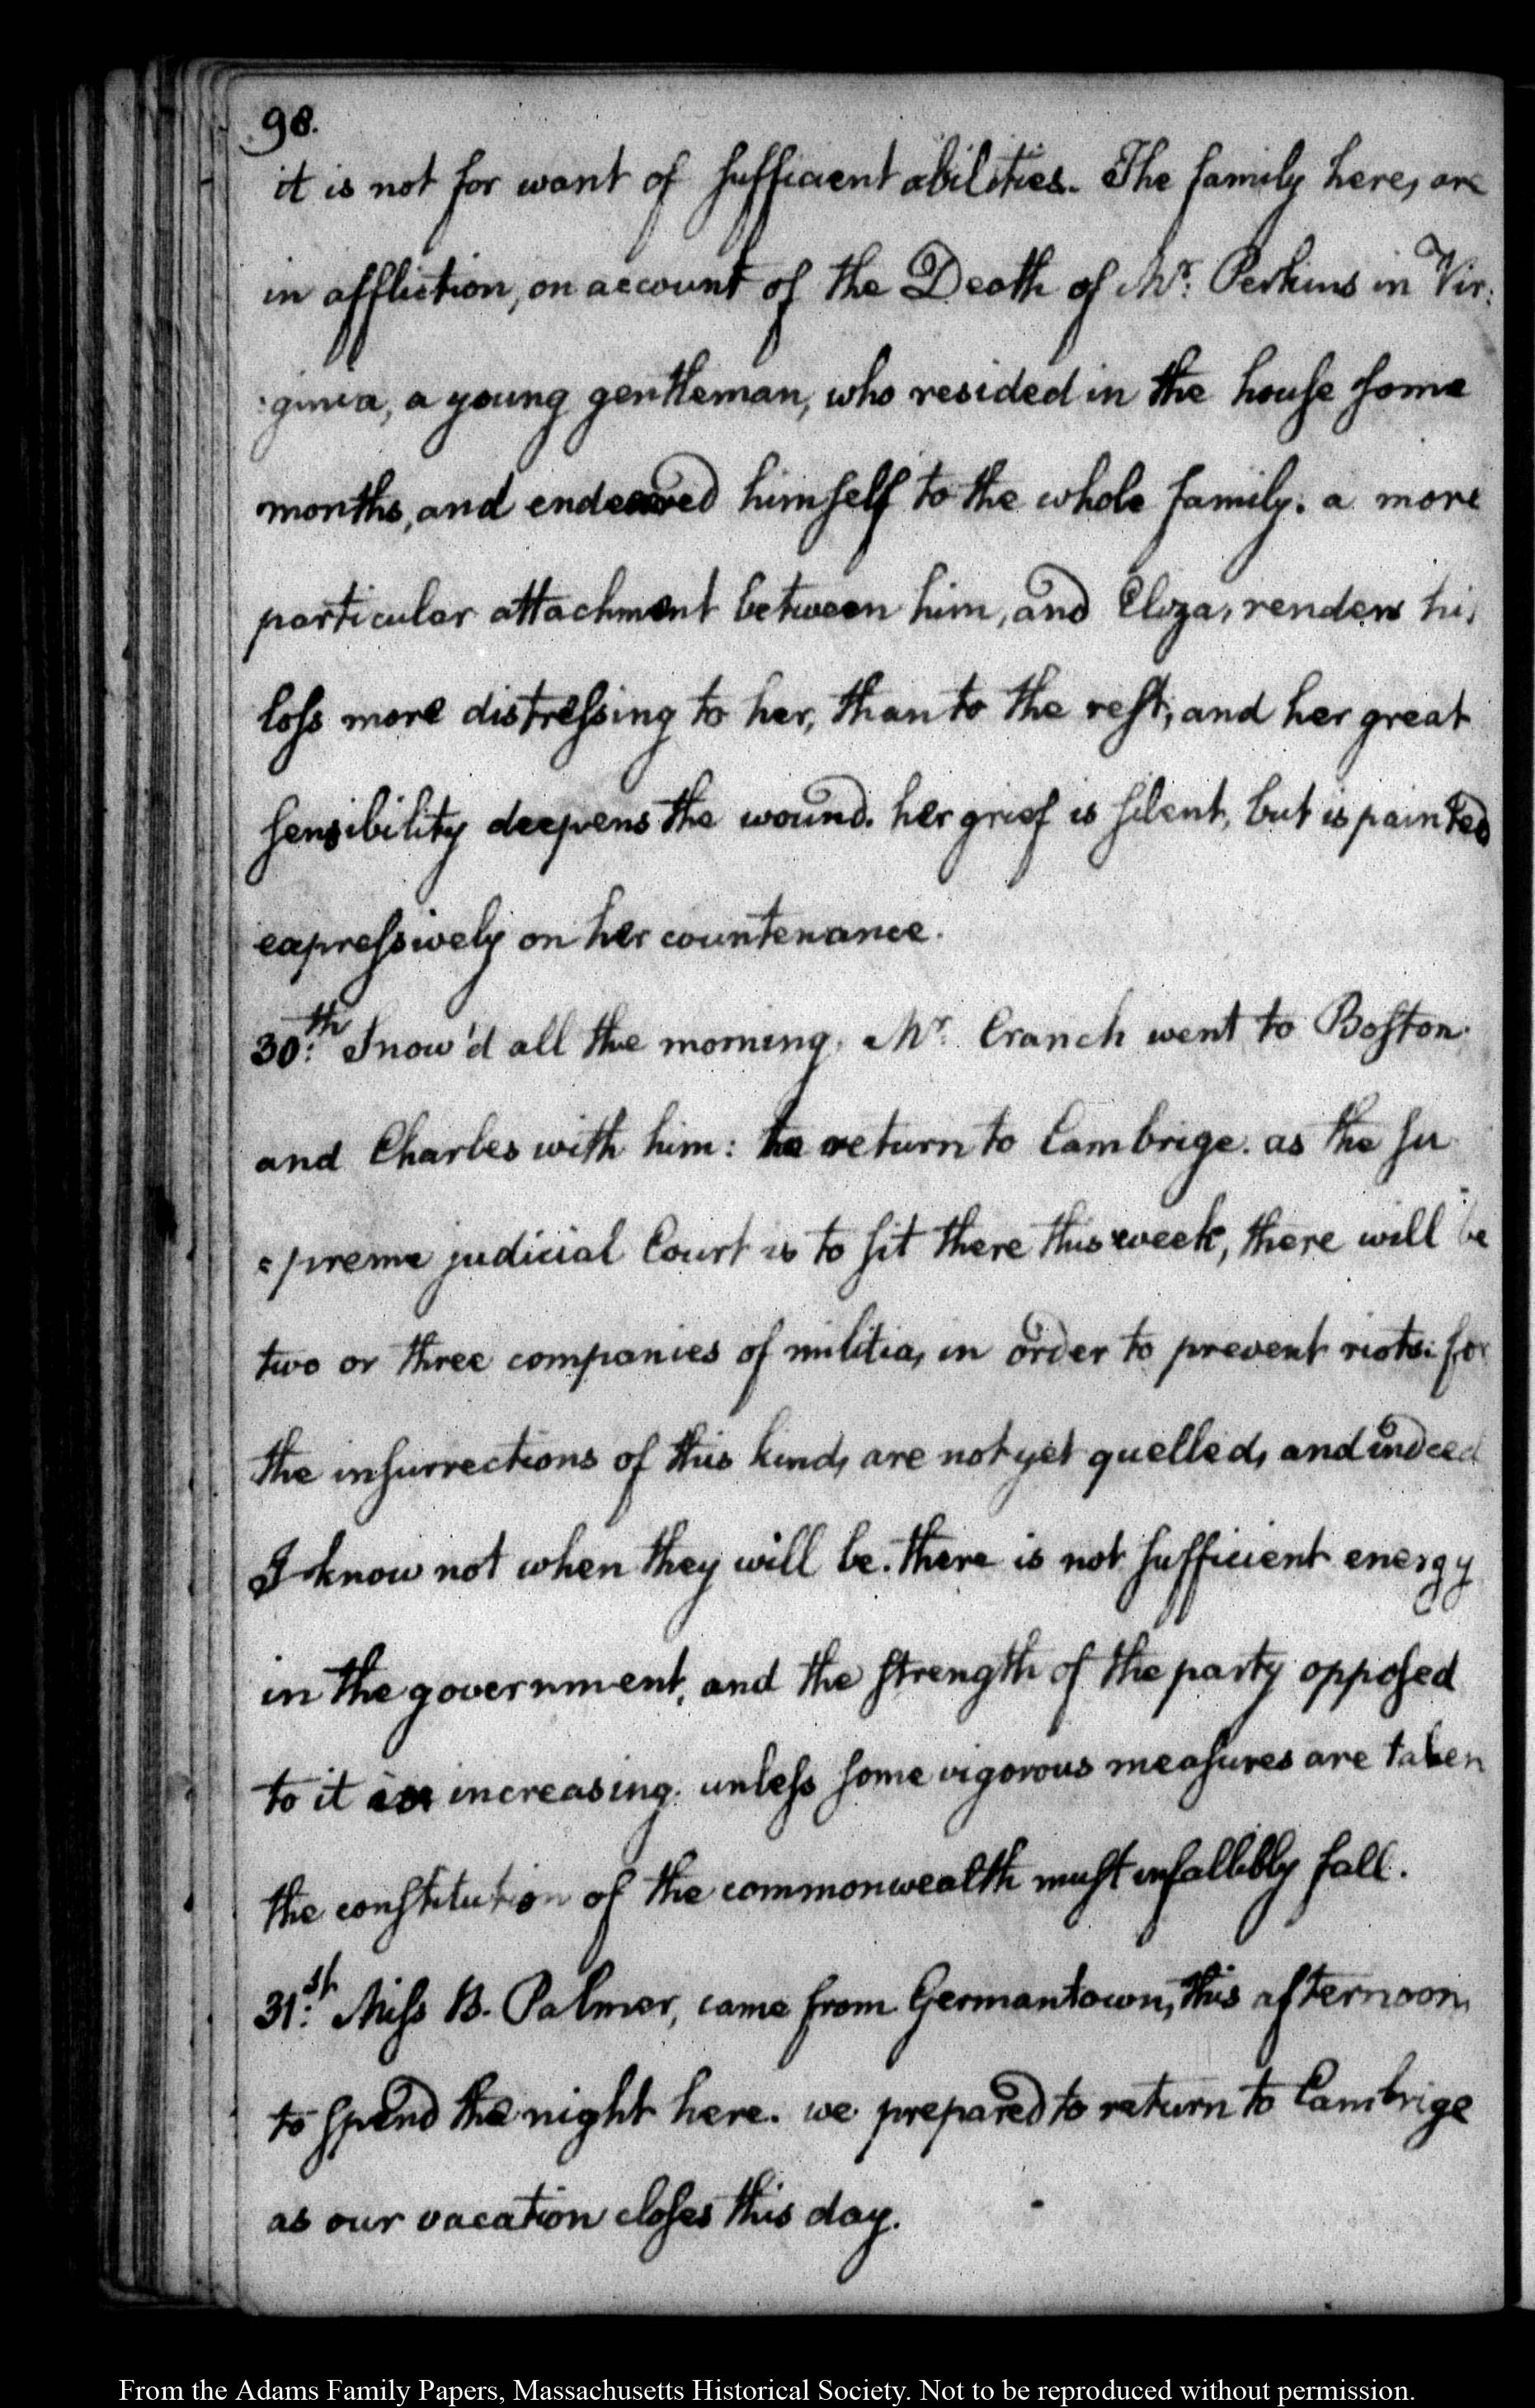 98.
it is not for want of sufficient abilities. The family here, are
in affliction, on account of the Death of Mr: Perkins in Vir:
:ginia, a young gentleman, who resided in the house some
months, and endeared himself to the whole family: a more
particular attachment between him, and Eliza, renders his
loss more distressing to her, than to the rest, and her great
sensibility deepens the wound. her grief is silent, but is painted
expressively on her countenance.
30:th Snow'd all the morning. Mr. Cranch went to Boston.
and Charles with him: to return to Cambrige. as the su
:preme judicial Court is to sit there this week, there will be
two or three companies of militia, in order to prevent riots: for
the insurrections of this kind, are not yet quelled, and indeed
I know not when they will be. there is not sufficient energy
in the government, and the strength of the party opposed
to it is increasing. unless some vigorous measures are taken
the constitution of the commonwealth must infallibly fall.
31:st Miss B. Palmer, came from Germantown, this afternoon,
to spend the night here. we prepared to return to Cambrige
as our vacation closes this day.
From the Adams Family Papers, Massachusetts Historical Society. Not to be reproduced without permission.